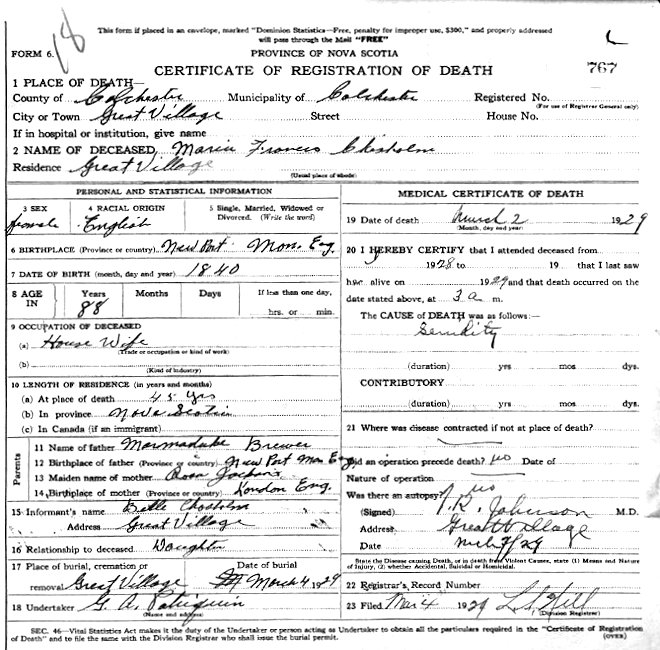 This form if placed in an envelope, marked "Dominion Statistics—Free, penalty for improper use, $300," and properly addressed
will pass through the Mail "FREE"
18
FORM 6.
PROVINCE OF NOVA SCOTIA
CERTIFICATE OF REGISTRATION OF DEATH
767
1 PLACE OF DEATH—
County of Colchester Municipality of Colchester Registered No.
(For use of Registrar General only)
City or Town Great Village Street House No.
If in hospital or institution, give name
2 NAME OF DECEASED, Maria Francis Chisholm
Residence Great Village
(Usual place of abode)
PERSONAL AND STATISTICAL INFORMATION
3 SEX 4 RACIAL ORIGIN 5 Single, Married, Widowed or
Divorced. (Write the word)
female English
6 BIRTHPLACE (Province or country) New Port Mon. Eng
7 DATE OF BIRTH (month, day and year) 1840
8 AGE IN Years Months Days If less than one day,
88 hrs. or min.
9 OCCUPATION OF DECEASED
(a) House Wife
(Trade or occupation or kind of work)
(b)
(Kind of industry)
10 LENGTH OF RESIDENCE (in years and months)
(a) At place of death 45 yrs
(b) In province Nova Scotia
(c) In Canada (if an immigrant)
Parents
11 Name of father Marmaduke Brewer
12 Birthplace of father (Province or country) New Port Mon Eng
13 Maiden name of mother Rosa
14 Birthplace of mother (Province or country) London Eng.
15 Informant's name Belle Chisholm
Address Great Village
16 Relationship to deceased Daughter
17 Place of burial, cremation or Date of burial
removal Great Village March 4 1929
18 Undertaker G. A. Patriquin
(Name and address)
MEDICAL CERTIFICATE OF DEATH
19 Date of death March 2 1929
(Month, day and year)
20 I HEREBY CERTIFY that I attended deceased from
1928 to 19 that I last saw
her alive on 1929 and that death occurred on the
date stated above, at 3 a m.
The CAUSE OF DEATH was as follows:—
Senility
(duration) yrs mos dys.
CONTRIBUTORY
(duration) yrs mos. dys.
21 Where was disease contracted if not at place of death?
Did an operation precede death? no Date of
Nature of operation
Was there an autopsy? no
(Signed) Johnson M.D.
Address Great Village
Date
State the Disease causing Death, or in death from Violent Causes, state (1) Means and Nature
of Injury, (2) whether Accidental, Suicidal or Homicidal.
22 Registrar's Record Number
23 Filed Mar 4 1929 L. S. Hill
(Division Registrar)
SEC. 46—Vital Statistics Act makes it the duty of the Undertaker or person acting as Undertaker to obtain all the particulars required in the "Certificate of Registration
of Death" and to file the same with the Division Registrar who shall issue the burial permit. (OVER)